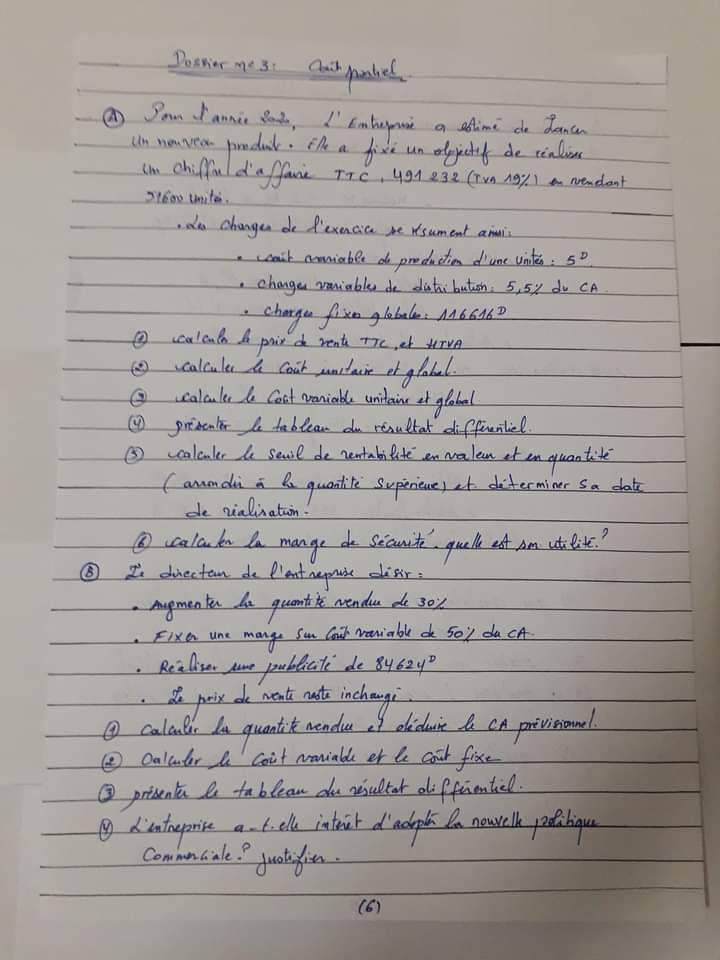 Dossier n° 3: Coût partiel.
(A) Pour l'année 2020, L'Entreprise a estimé de Lancer
un nouveau produit. Elle a fixé un objectif de réaliser
un chiffre d'affaire TTC, 491 232 (TVA 19%) en vendant
51600 unités.
• Les charges de l'exercice se résument ainsi:
• coût variable de production d'une unités: 5D
• charges variables de distribution: 5,5% du CA.
• charges fixes globales: 116616D
(1) calculer le prix de vente TTC, et HTVA
(2) calculer le Coût unitaire et global.
(3) calculer le Coût variable unitaire et global
(4) présenter le tableau du résultat différentiel.
(5) calculer le seuil de rentabilité en valeur et en quantité
(arrondir à la quantité supérieure) et déterminer sa date
de réalisation.
(6) calculer la marge de sécurité. quelle est son utilité?
(B) Le directeur de l'entreprise désir:
• Augmenter la quantité vendue de 30%
• Fixer une marge sur Coût variable de 50% du CA.
• Réaliser une publicité de 84624D
• Le prix de vente reste inchangé.
(1) calculer la quantité vendue et déduire le CA prévisionnel.
(2) Calculer le Coût variable et le coût fixe
(3) présenter le tableau du résultat différentiel.
(4) L'entreprise a-t-elle intérêt d'adopter la nouvelle politique
Commerciale? justifier.
(6)